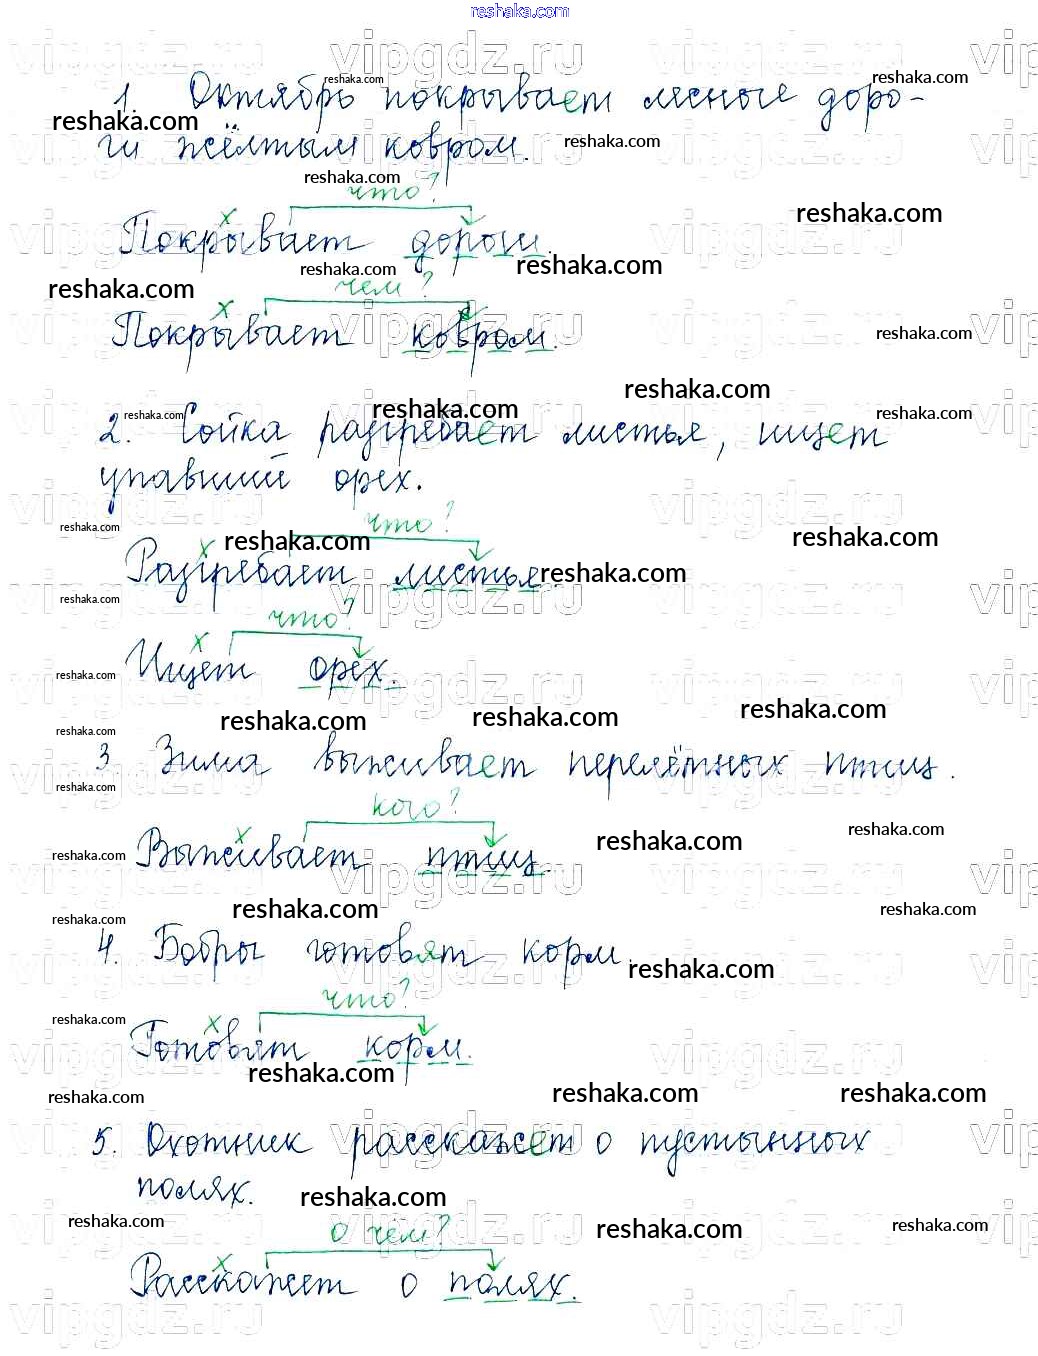 reshaka.com
1. Октябрь покрывает лесные доро-
ги жёлтым ковром.
что?
х
Покрывает дороги.
чем?
х
Покрывает ковром.
2. Сойка разгребает листья, ищет
упавший орех.
что?
х
Разгребает листья.
что?
х
Ищет орех.
3 Зима выживает перелётных птиц.
кого?
х
Выживает птиц.
4. Бобры готовят корм.
что?
х
Готовят корм.
5. Охотник расскажет о пустынных
полях.
о чём?
х
Расскажет о полях.